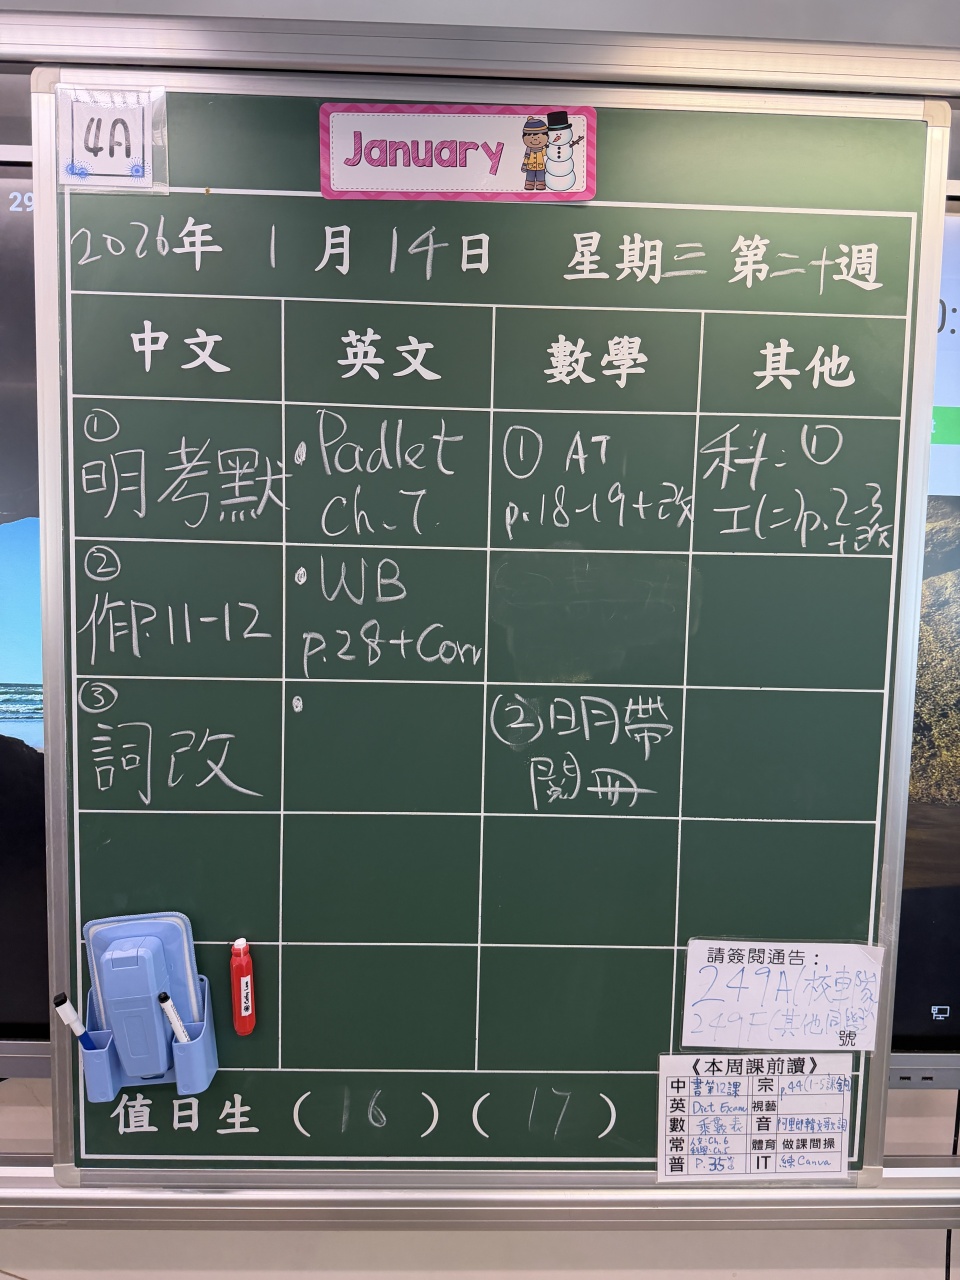 4A
January
29
2026年 1月 14日 星期三 第二十週
中文 英文 數學 其他
① 明考默
② 作P.11-12
③ 詞改
Padlet
Ch.7
WB
p.28+Corr
① AT
p.18-19+改
② 明帶
閱冊
科:①
工(二)p.2-3
+改
請簽閱通告:
249A(校車隊
249F(其他同學)
號
值日生(16)(17)
《本周課前讀》
中 書第12課 宗 p.44(1-5課
英 Dict Exam 視藝
數 乘數表 音
常 Ch.6 Ch.5 體育 做課間操
普 P.35 IT 練Canva